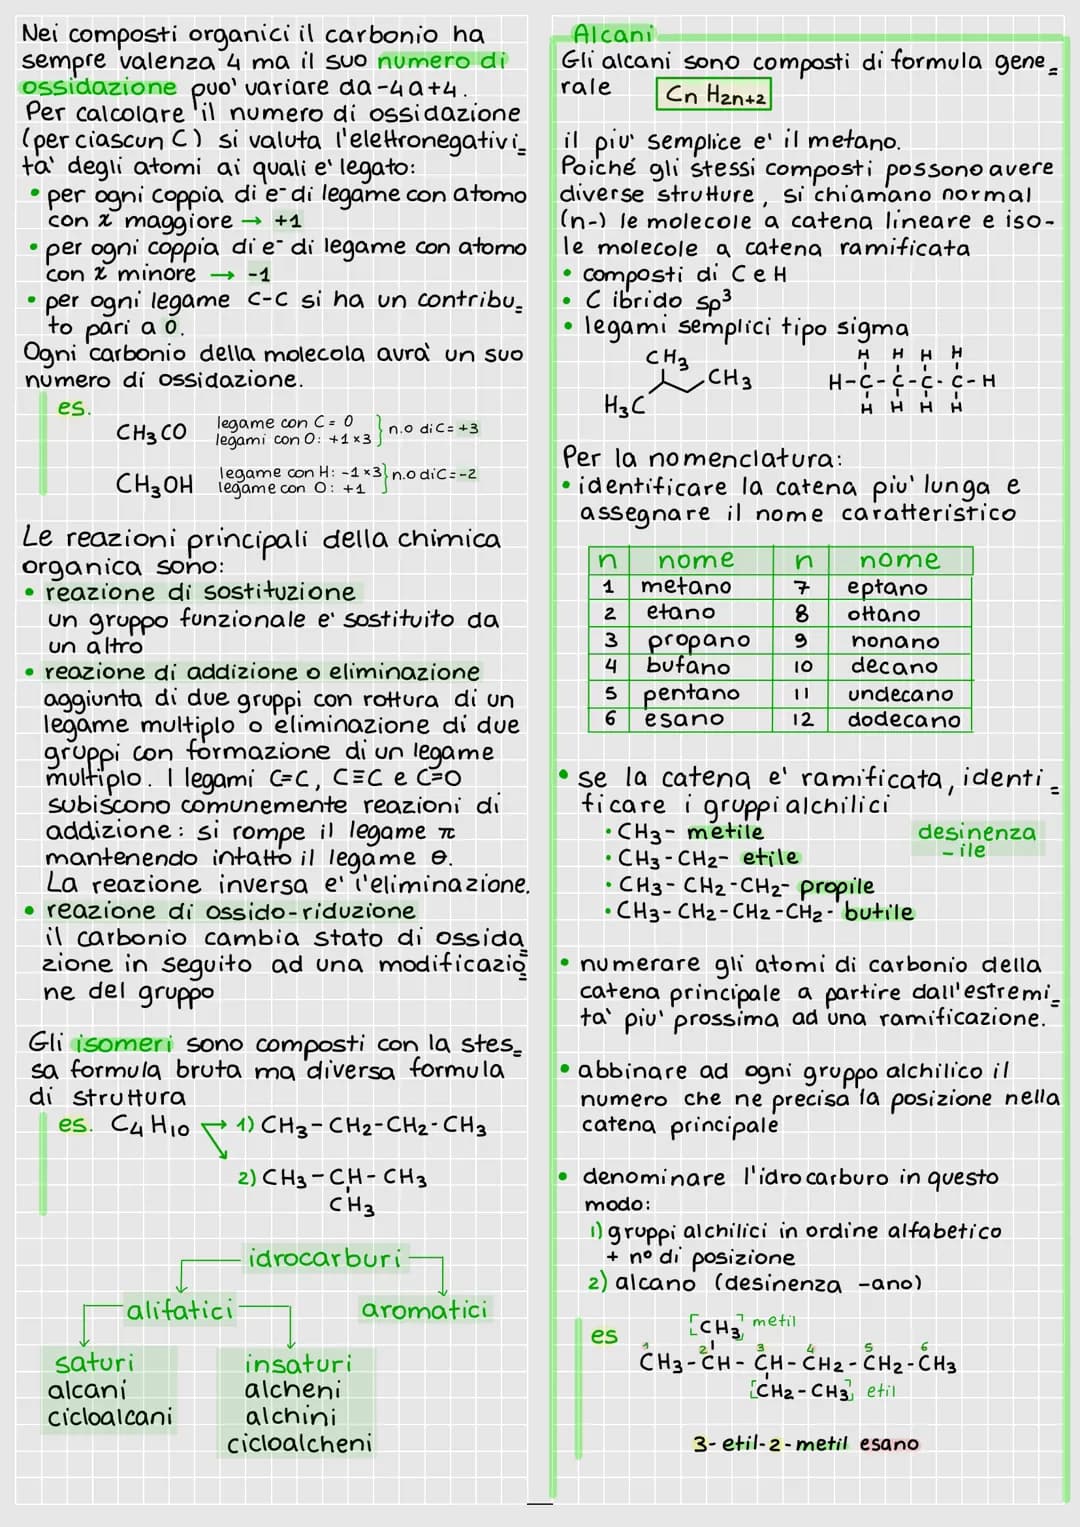 Nei composti organici il carbonio ha
sempre valenza 4 ma il suo numero di
ossidazione puo' variare da -4 a +4.
Per calcolare il numero di ossidazione
(per ciascun C) si valuta l'elettronegativi=
ta' degli atomi ai quali e' legato:
• per ogni coppia di e- di legame con atomo
con χ maggiore → +1
• per ogni coppia di e- di legame con atomo
con χ minore → -1
• per ogni legame C-C si ha un contribu=
to pari a 0.
Ogni carbonio della molecola avrà un suo
numero di ossidazione.
es.
CH3CO legame con C = 0
legami con O: +1 x 3 } n.o di C = +3
CH3OH legame con H: -1 x 3
legame con O: +1 } n.o di C = -2
Le reazioni principali della chimica
organica sono:
• reazione di sostituzione
un gruppo funzionale e' sostituito da
un altro
• reazione di addizione o eliminazione
aggiunta di due gruppi con rottura di un
legame multiplo o eliminazione di due
gruppi con formazione di un legame
multiplo. I legami C=C, C≡C e C=O
subiscono comunemente reazioni di
addizione: si rompe il legame π
mantenendo intatto il legame θ.
La reazione inversa e' l'eliminazione.
• reazione di ossido-riduzione
il carbonio cambia stato di ossida=
zione in seguito ad una modificazio=
ne del gruppo
Gli isomeri sono composti con la stes=
sa formula bruta ma diversa formula
di struttura
es. C4H10 → 1) CH3-CH2-CH2-CH3
2) CH3-CH-CH3
CH3
idrocarburi
alifatici aromatici
saturi
alcani
cicloalcani
insaturi
alcheni
alchini
cicloalcheni
Alcani
Gli alcani sono composti di formula gene=
rale CnH2n+2
il piu' semplice e' il metano.
Poiché gli stessi composti possono avere
diverse strutture, si chiamano normal
(n-) le molecole a catena lineare e iso-
le molecole a catena ramificata
• composti di C e H
• C ibrido sp3
• legami semplici tipo sigma
CH3
CH3
H3C
H H H H
H-C-C-C-C-H
H H H H
Per la nomenclatura:
• identificare la catena piu' lunga e
assegnare il nome caratteristico
n nome n nome
1 metano 7 eptano
2 etano 8 ottano
3 propano 9 nonano
4 bufano 10 decano
5 pentano 11 undecano
6 esano 12 dodecano
• se la catena e' ramificata, identi=
ficare i gruppi alchilici
• CH3- metile
• CH3-CH2- etile
• CH3-CH2-CH2- propile
• CH3-CH2-CH2-CH2- butile
desinenza
-ile
• numerare gli atomi di carbonio della
catena principale a partire dall'estremi=
ta' piu' prossima ad una ramificazione.
• abbinare ad ogni gruppo alchilico il
numero che ne precisa la posizione nella
catena principale
• denominare l'idrocarburo in questo
modo:
1) gruppi alchilici in ordine alfabetico
+ n° di posizione
2) alcano (desinenza -ano)
es
[CH3] metil
1 2 3 4 5 6
CH3-CH-CH-CH2-CH2-CH3
[CH2-CH3] etil
3-etil-2-metil esano